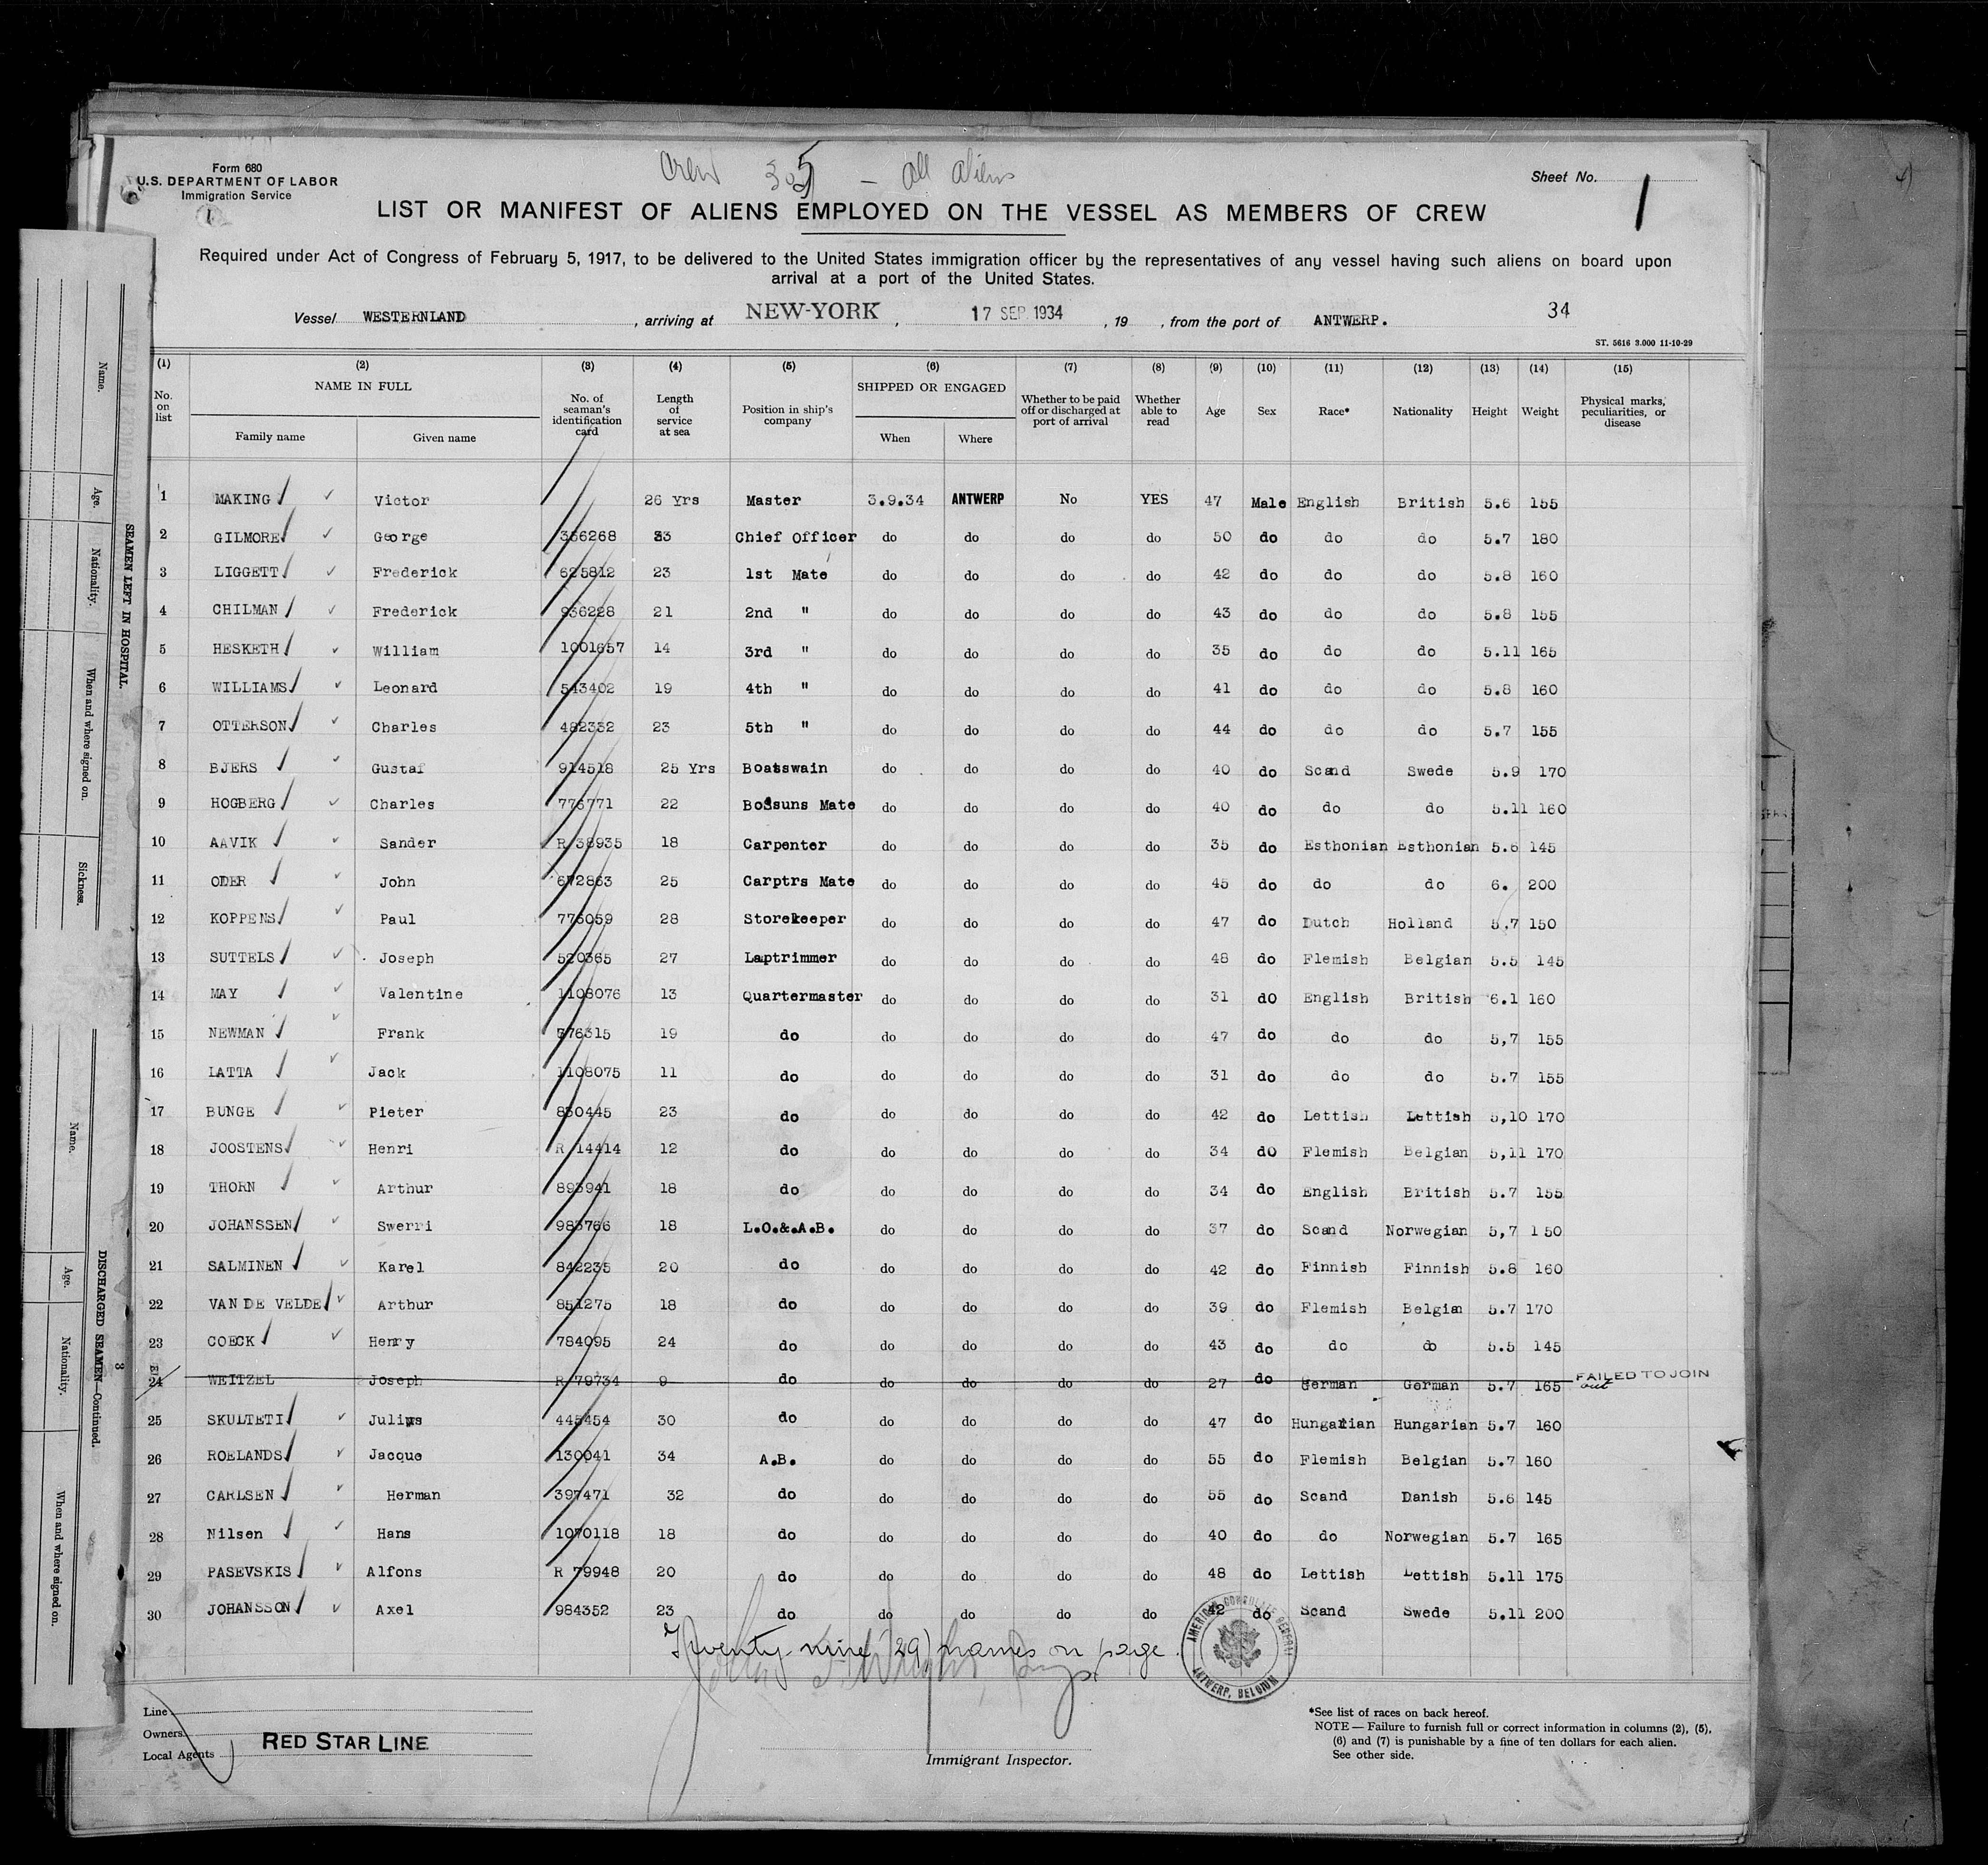 Crew 305 — All Aliens
Form 680
U.S. DEPARTMENT OF LABOR
Immigration Service
1
Sheet No. 1
LIST OR MANIFEST OF ALIENS EMPLOYED ON THE VESSEL AS MEMBERS OF CREW
Required under Act of Congress of February 5, 1917, to be delivered to the United States immigration officer by the representatives of any vessel having such aliens on board upon
arrival at a port of the United States.
Vessel WESTERNLAND, arriving at NEW-YORK, 17 SEP. 1934, 19 , from the port of ANTWERP. 34
ST. 5616 3.000 11-10-29
(1) (2) (3) (4) (5) (6) (7) (8) (9) (10) (11) (12) (13) (14) (15)
No. on list NAME IN FULL Family name Given name No. of seaman's identification card Length of service at sea Position in ship's company SHIPPED OR ENGAGED When Where Whether to be paid off or discharged at port of arrival Whether able to read Age Sex Race* Nationality Height Weight Physical marks, peculiarities, or disease
1 MAKING Victor 26 Yrs Master 3.9.34 ANTWERP No YES 47 Male English British 5.6 155
2 GILMORE George 336268 33 Chief Officer do do do do 50 do do do 5.7 180
3 LIGGETT Frederick 625812 23 1st Mate do do do do 42 do do do 5.8 160
4 CHILMAN Frederick 936228 21 2nd " do do do do 43 do do do 5.8 155
5 HESKETH William 1001657 14 3rd " do do do do 35 do do do 5.11 165
6 WILLIAMS Leonard 543402 19 4th " do do do do 41 do do do 5.8 160
7 OTTERSON Charles 482332 23 5th " do do do do 44 do do do 5.7 155
8 BJERS Gustaf 914518 25 Yrs Boatswain do do do do 40 do Scand Swede 5.9 170
9 HOGBERG Charles 776771 22 Bosuns Mate do do do do 40 do do do 5.11 160
10 AAVIK Sander R 38935 18 Carpenter do do do do 35 do Esthonian Esthonian 5.6 145
11 ODER John 672863 25 Carptrs Mate do do do do 45 do do do 6. 200
12 KOPPENS Paul 776059 28 Storekeeper do do do do 47 do Dutch Holland 5.7 150
13 SUTTELS Joseph 520365 27 Lamptrimmer do do do do 48 do Flemish Belgian 5.5 145
14 MAY Valentine 1108076 13 Quartermaster do do do do 31 do English British 6.1 160
15 NEWMAN Frank 776315 19 do do do do do 47 do do do 5,7 155
16 LATTA Jack 1108075 11 do do do do do 31 do do do 5.7 155
17 BUNGE Pieter 830445 23 do do do do do 42 do Lettish Lettish 5,10 170
18 JOOSTENS Henri R 14414 12 do do do do do 34 do Flemish Belgian 5,11 170
19 THORN Arthur 893941 18 do do do do do 34 do English British 5.7 155
20 JOHANSSEN Swerri 983766 18 L.O.&.A.B. do do do do 37 do Scand Norwegian 5,7 150
21 SALMINEN Karel 842235 20 do do do do do 42 do Finnish Finnish 5.8 160
22 VAN DE VELDE Arthur 851275 18 do do do do do 39 do Flemish Belgian 5.7 170
23 COECK Henry 784095 24 do do do do do 43 do do do 5.5 145
24 WEITZEL Joseph R 79734 9 do do do do do 27 do German German 5.7 165 FAILED TO JOIN out
25 SKULTETI Julius 445454 30 do do do do do 47 do Hungarian Hungarian 5.7 160
26 ROELANDS Jacque 130041 34 A.B. do do do do 55 do Flemish Belgian 5.7 160
27 CARLSEN Herman 397471 32 do do do do do 55 do Scand Danish 5.6 145
28 Nilsen Hans 1070118 18 do do do do do 40 do do Norwegian 5.7 165
29 PASEVSKIS Alfons R 79948 20 do do do do do 48 do Lettish Lettish 5.11 175
30 JOHANSSON Axel 984352 23 do do do do do 42 do Scand Swede 5.11 200
Twenty-nine (29) names on page.
AMERICAN CONSULATE GENERAL
ANTWERP, BELGIUM
Line
Owners
Local Agents
RED STAR LINE
Immigrant Inspector.
*See list of races on back hereof.
NOTE — Failure to furnish full or correct information in columns (2), (5),
(6) and (7) is punishable by a fine of ten dollars for each alien.
See other side.
SEAMEN LEFT IN HOSPITAL.
Name.
Age.
Nationality.
When and where signed on.
Sickness.
DISCHARGED SEAMEN—Continued.
3
Name.
Age.
Nationality.
When and where signed on.